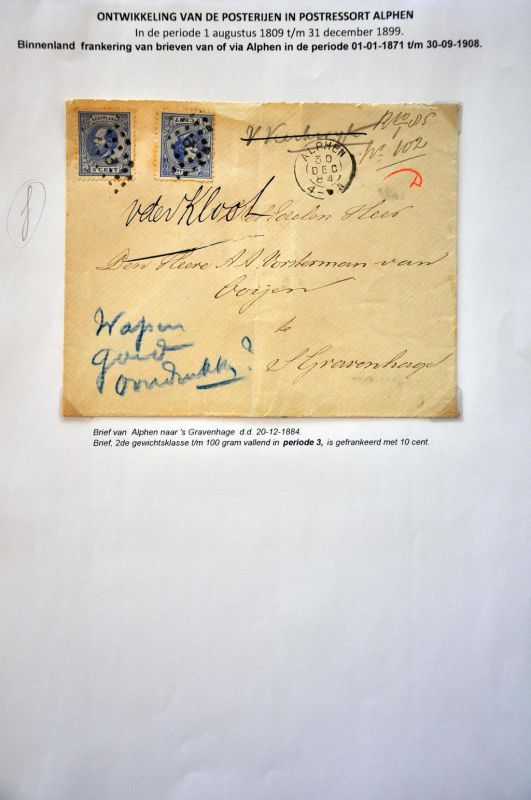 ONTWIKKELING VAN DE POSTERIJEN IN POSTRESSORT ALPHEN
In de periode 1 augustus 1809 t/m 31 december 1899.
Binnenland frankering van brieven van of via Alphen in de periode 01-01-1871 t/m 30-09-1908.
NEDERLAND
5 CENT
ALPHEN
30
DEC
84
No 102
v der Kloot
Edelen Heer
Den Heere A. A. Vorsterman van
Ooijen
te
s'Gravenhage
Wapen
goed
overdrukk?
Brief van Alphen naar 's Gravenhage d.d. 20-12-1884.
Brief, 2de gewichtsklasse t/m 100 gram vallend in periode 3, is gefrankeerd met 10 cent.